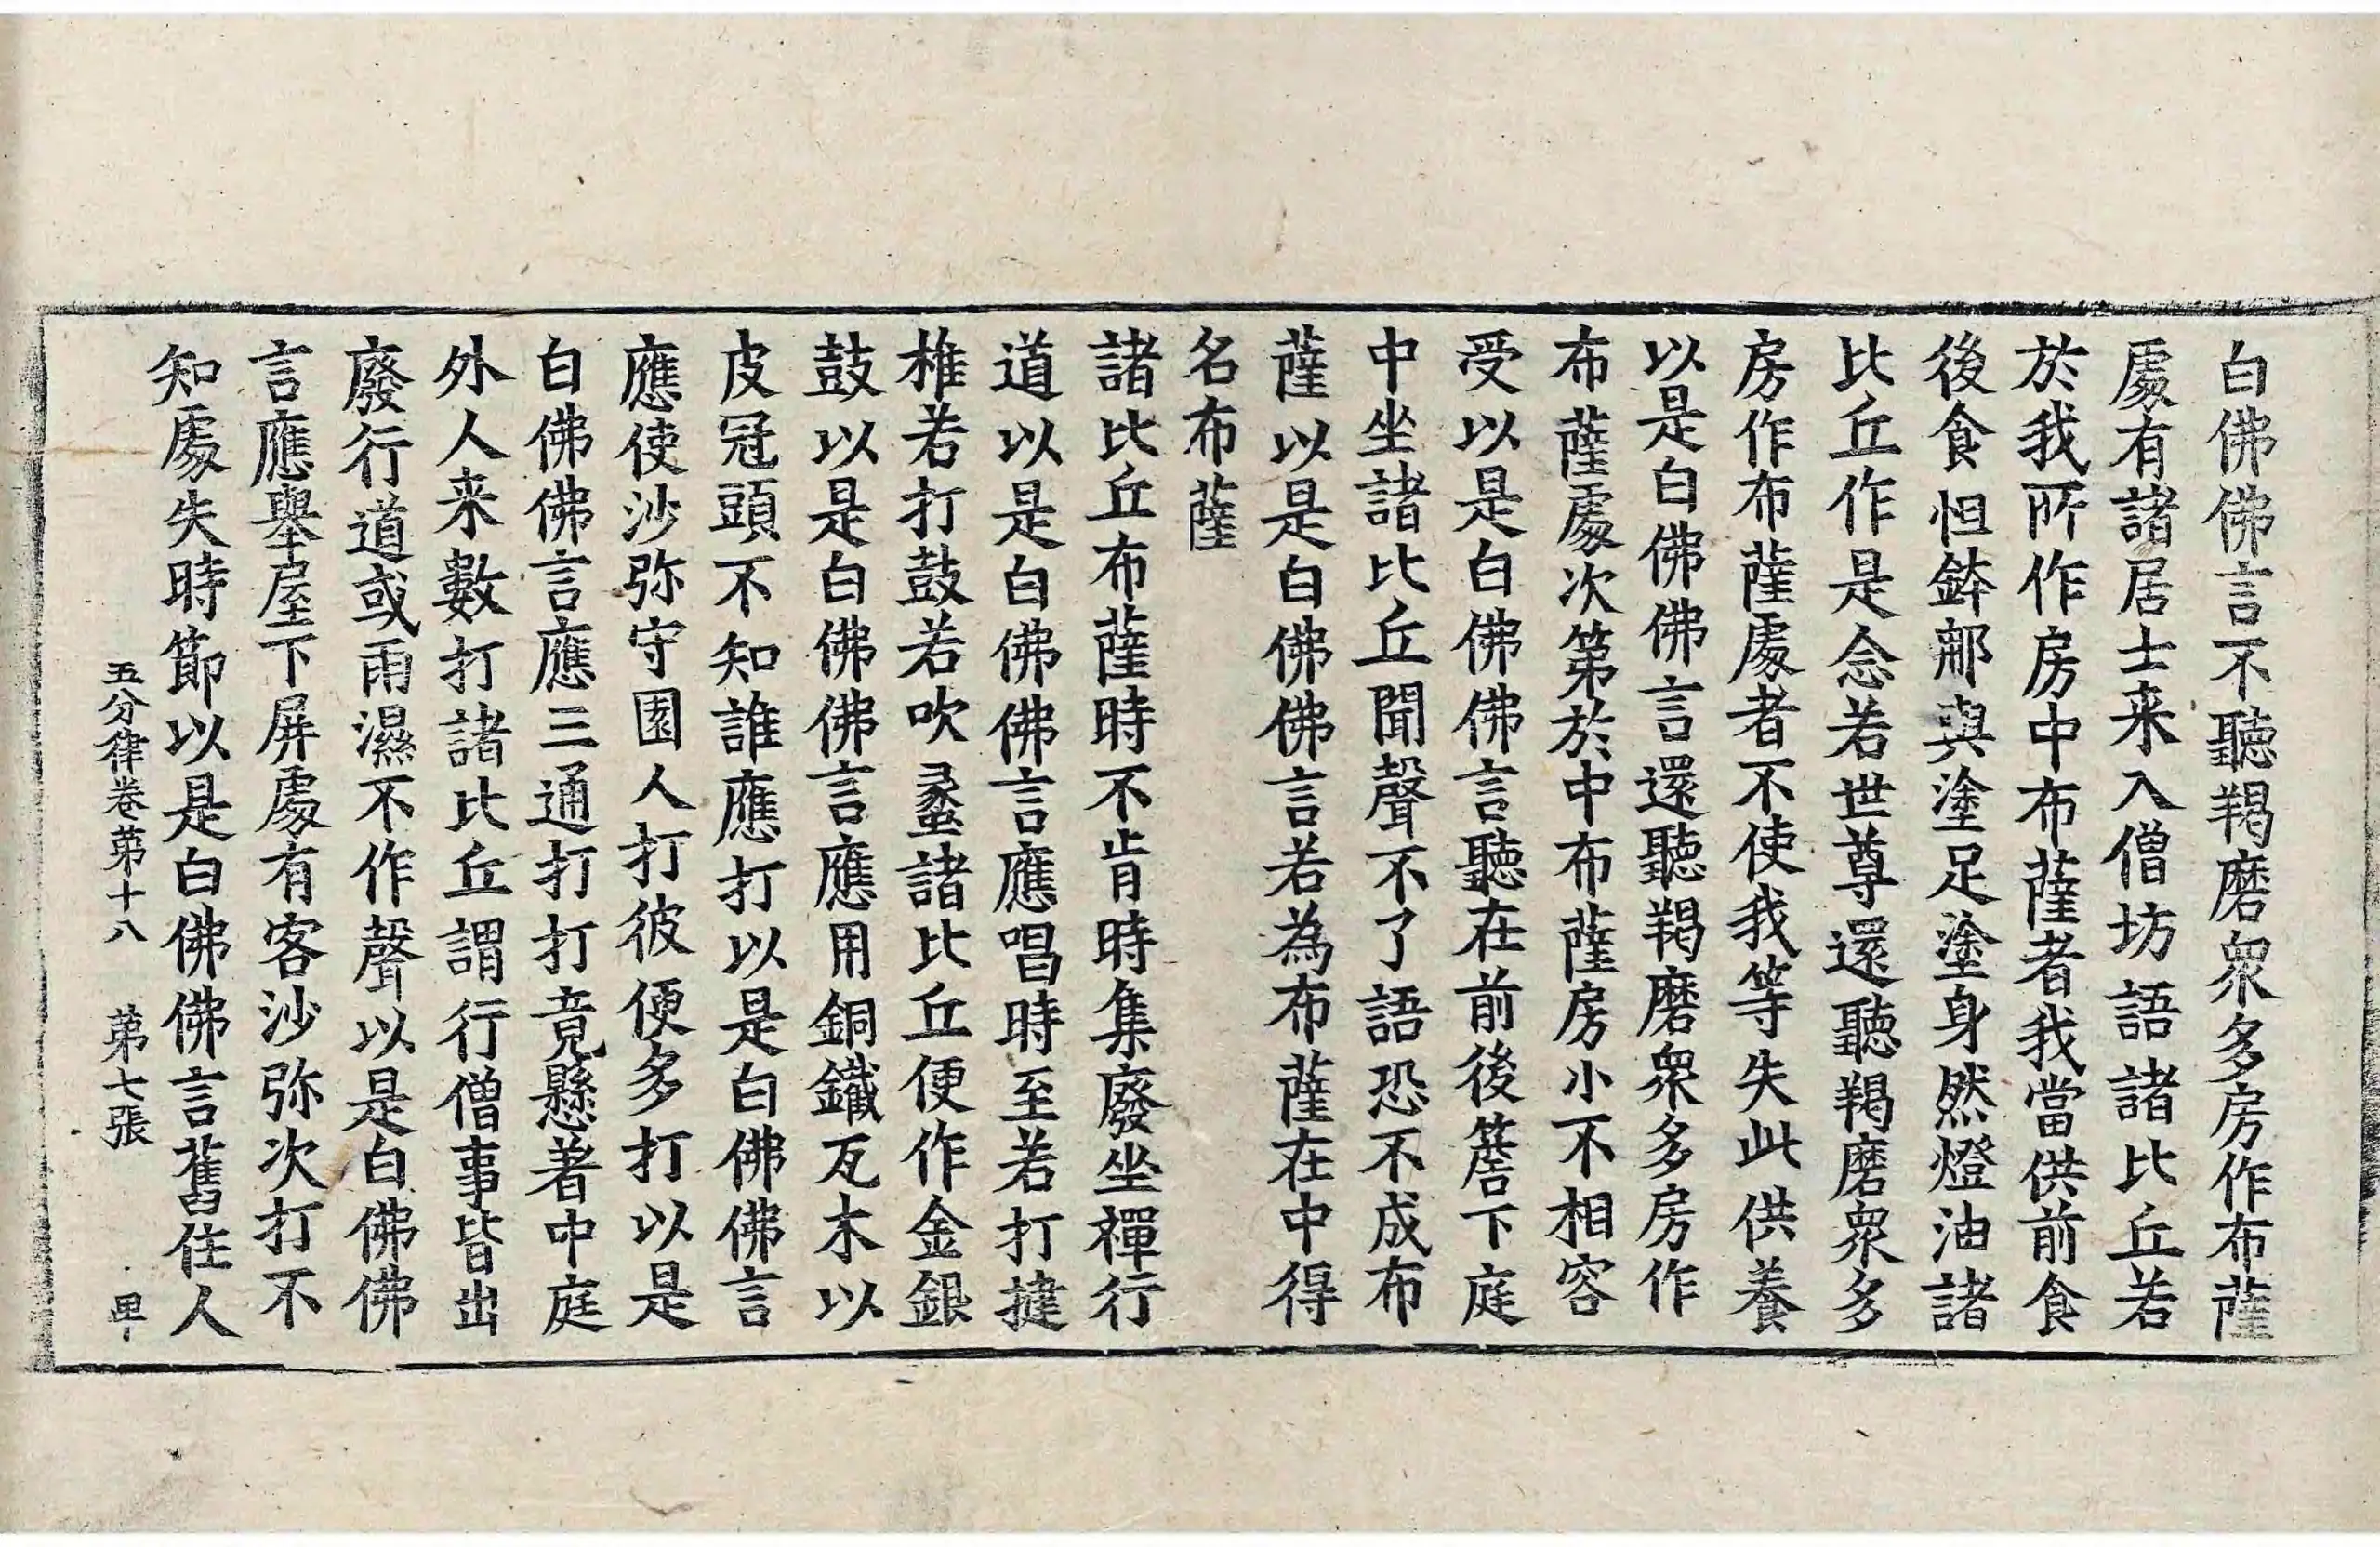 白佛佛言不聽羯磨衆多房作布薩
處有諸居士来入僧坊語諸比丘若
於我所作房中布薩者我當供前食
後食怛鉢郍與塗足塗身然燈油諸
比丘作是念若世尊還聽羯磨衆多
房作布薩處者不使我等失此供養
以是白佛佛言還聽羯磨衆多房作
布薩處次第於中布薩房小不相容
受以是白佛佛言聽在前後簷下庭
中坐諸比丘聞聲不了語恐不成布
薩以是白佛佛言若為布薩在中得
名布薩
諸比丘布薩時不肯時集廢坐禪行
道以是白佛佛言應唱時至若打揵
椎若打鼓若吹蠡諸比丘便作金銀
鼓以是白佛佛言應用銅鐵瓦木以
皮冠頭不知誰應打以是白佛佛言
應使沙弥守園人打彼便多打以是
白佛佛言應三通打打竟懸著中庭
外人来數打諸比丘謂行僧事皆出
廢行道或雨濕不作聲以是白佛佛
言應舉屋下屏處有客沙弥次打不
知處失時節以是白佛佛言舊住人
五分律卷第十八 第七張 卑